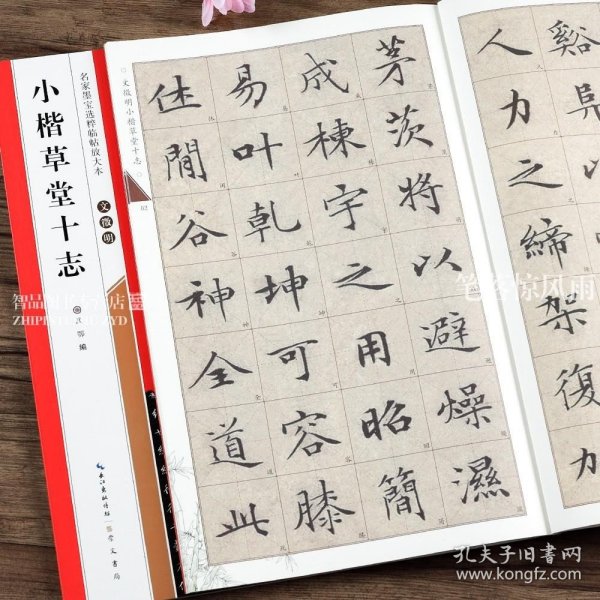 谿
人力之締架復力
茅茨将以避燥濕
成棟宇之用昭簡
易叶乾坤可容膝
休閒谷神全道此
○文徵明小楷草堂十志○
02
名家墨宝选粹临帖放大本
小楷草堂十志
文徵明
编
长江出版传媒
崇文书局
笔客惊风雨
孔夫子旧书网
www.kongfz.com